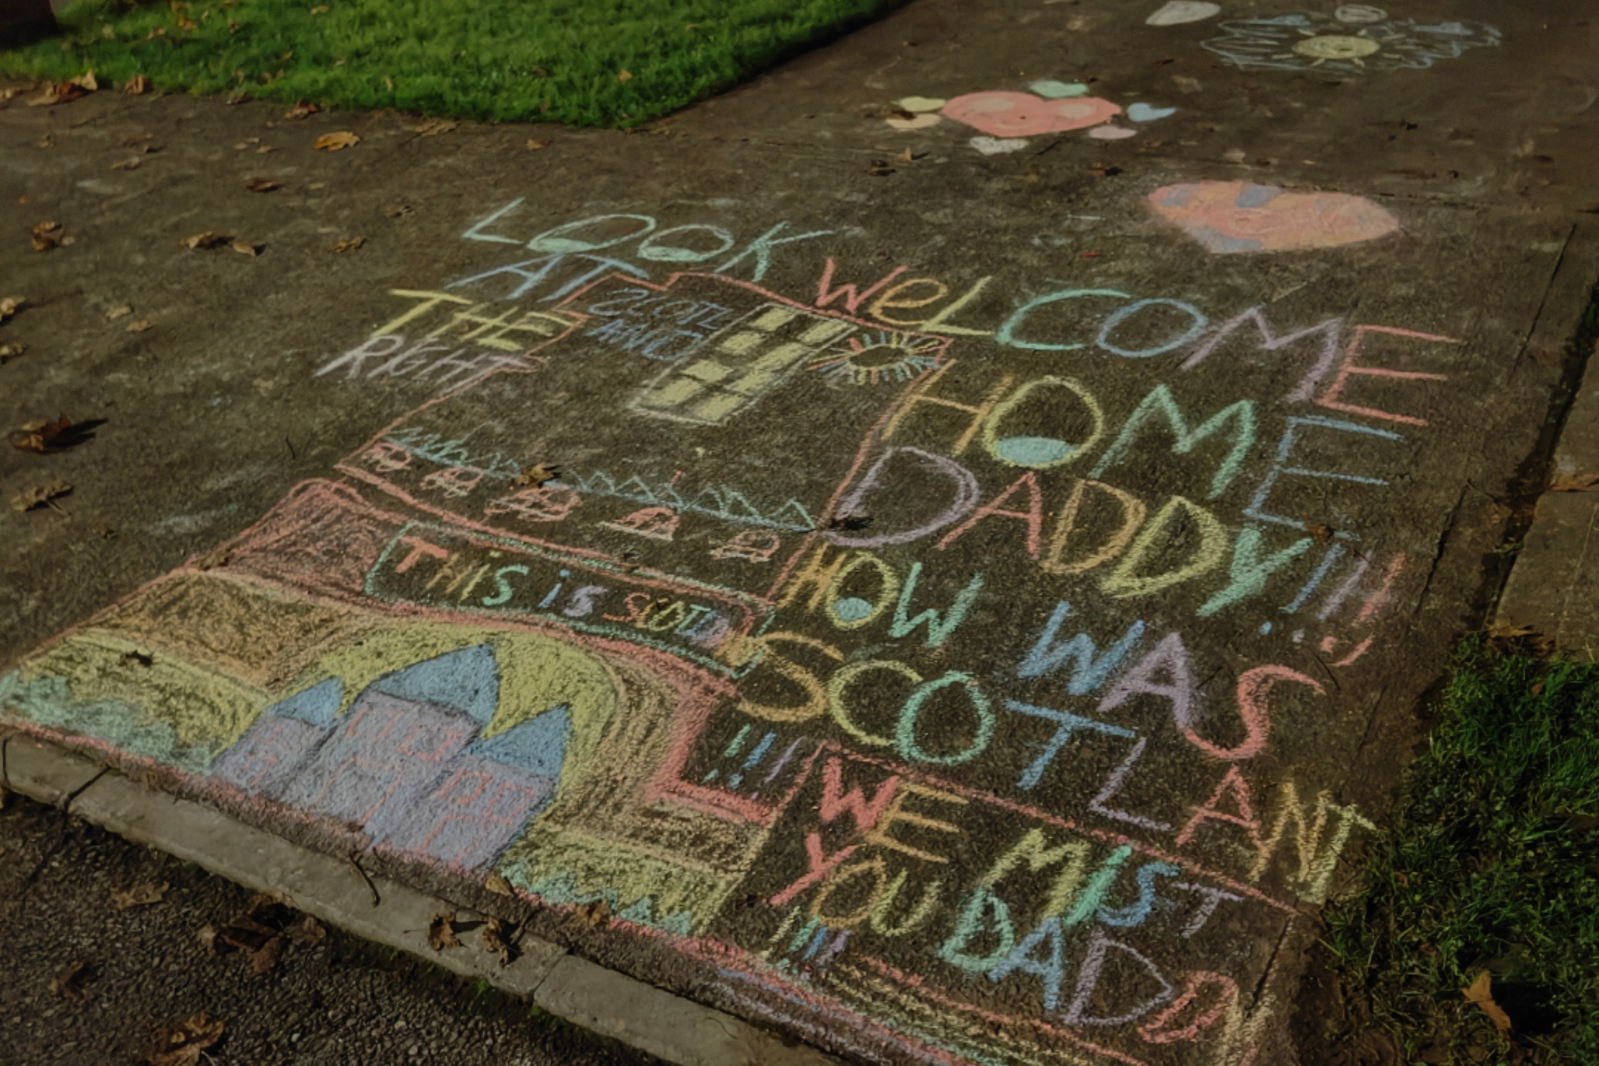 LOOK
AT
THE
RIGHT
WeLCOME
HOME
DADDy!!!
HOW WAS
SCOTLANT
!!!
WE MisT
YOU DADDy
!!!
THiS iS